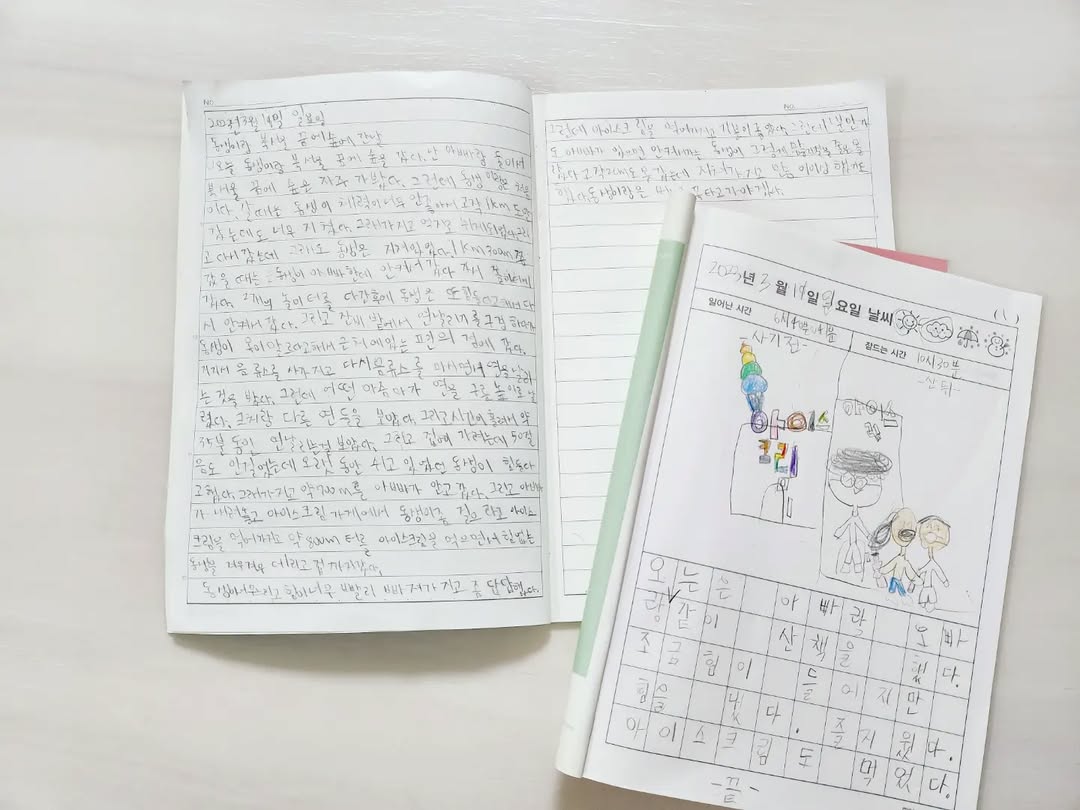 NO.
2023년 3월 19일 일요일
동생이랑 북서울 꿈에숲에 간날
오늘 동생이랑 북서울 꿈에 숲을 갔다. 난 아빠랑 둘이서
북서울 꿈에 숲은 자주 가봤다. 그런데 동생이랑은 처음
이다. 갈때는 동생이 체력이 너무 안좋아서 고작 1km도 안
갔는데도 너무 지쳤다. 그래가지고
고 다시 갔는데 그래도 동생은 지쳐있었다. 1km 300m 쯤
갔을 때는 동생이 아빠한테 안겨서 갔다
갔다. 2개의 놀이터를 다간후에 동생은 또 힘들다고 해서 다
시 안겨서 갔다. 그리고 잔디 밭에서 연날리기를 구경 하다가
동생이 목이 말르다고해서 근처에있는 편의점에 갔다.
음료수를 사가지고 다시 음료수를 마시면서 연을 날리
는 것을 봤다. 그런데 어떤 아줌마가 연을 높이 날
렸다. 그치만 다른 연들을 보았다. 그리고 시간이 흘러서 약
35분 동안 연날리는걸 보았다. 그리고 집에 가려는데 50걸
음도 안걸었는데 오랫 동안 쉬고 있었던 동생이 힘들다
고 했다. 그래가지고 약 700m를 아빠가 안고 갔다. 그리고 아빠
가 내려놓고 아이스크림 가게에서 동생이랑
크림을 먹어가지고 약 800m 터를 아이스크림을 먹으면서 힘없는
동생을 데리고 집까지갔다.
동생이 힘이너무 빨리 빠져가지고 좀 답답했다.
NO.
그런데 아이스크림을 먹어가지고 기분이 좋았다. 그런데
도 아빠가 있으면 안겨서가는 동생이 그렇게
갔다 고작 2km도 못 갔는데 지쳐가지고 말을
2023년 3월 19일 일요일 날씨
일어난 시간
6시
잠드는 시간
10시 30분
-사기전-
-산 뒤-
아이스
크림
아이스
크림
오늘은 아빠랑 오빠
랑 같이 산책을 했다.
조금 힘이 들이지만
힘을 냈다. 즐거웠다.
아이스크림도 먹었다.
-끝-